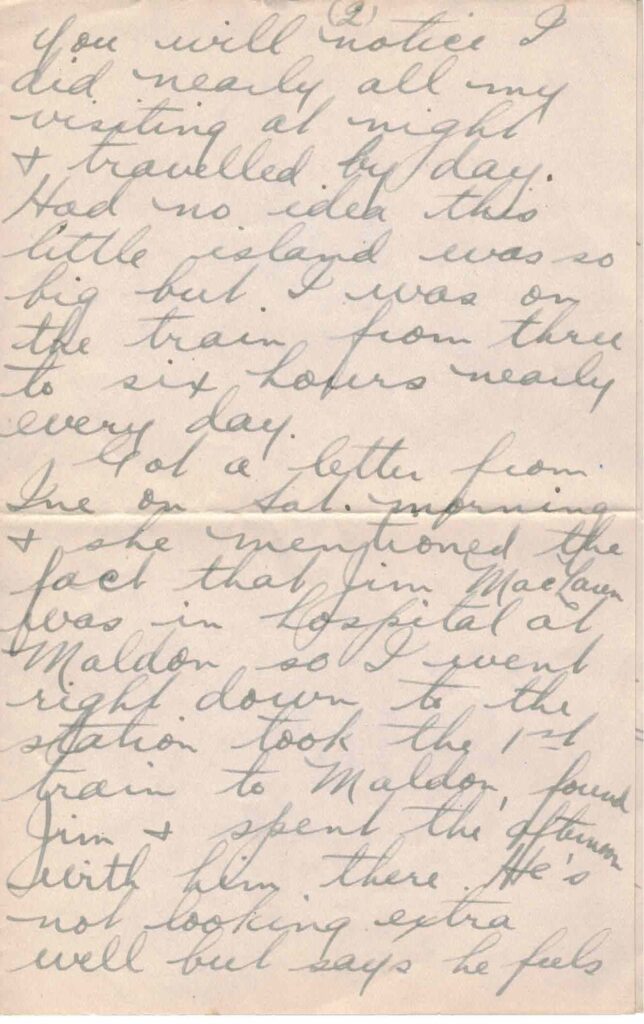 (2)
you will notice I
did nearly all my
visiting at night
+ travelled by day.
Had no idea this
little island was so
big but I was on
the train from three
to six hours nearly
every day.
Got a letter from
on Sat. morning
+ she mentioned the
fact that Jim
was in hospital at
Maldon so I went
right down to the
station took the 1st
train to Maldon, found
Jim + spent the afternoon
with him there. He's
not looking extra
well but says he feels